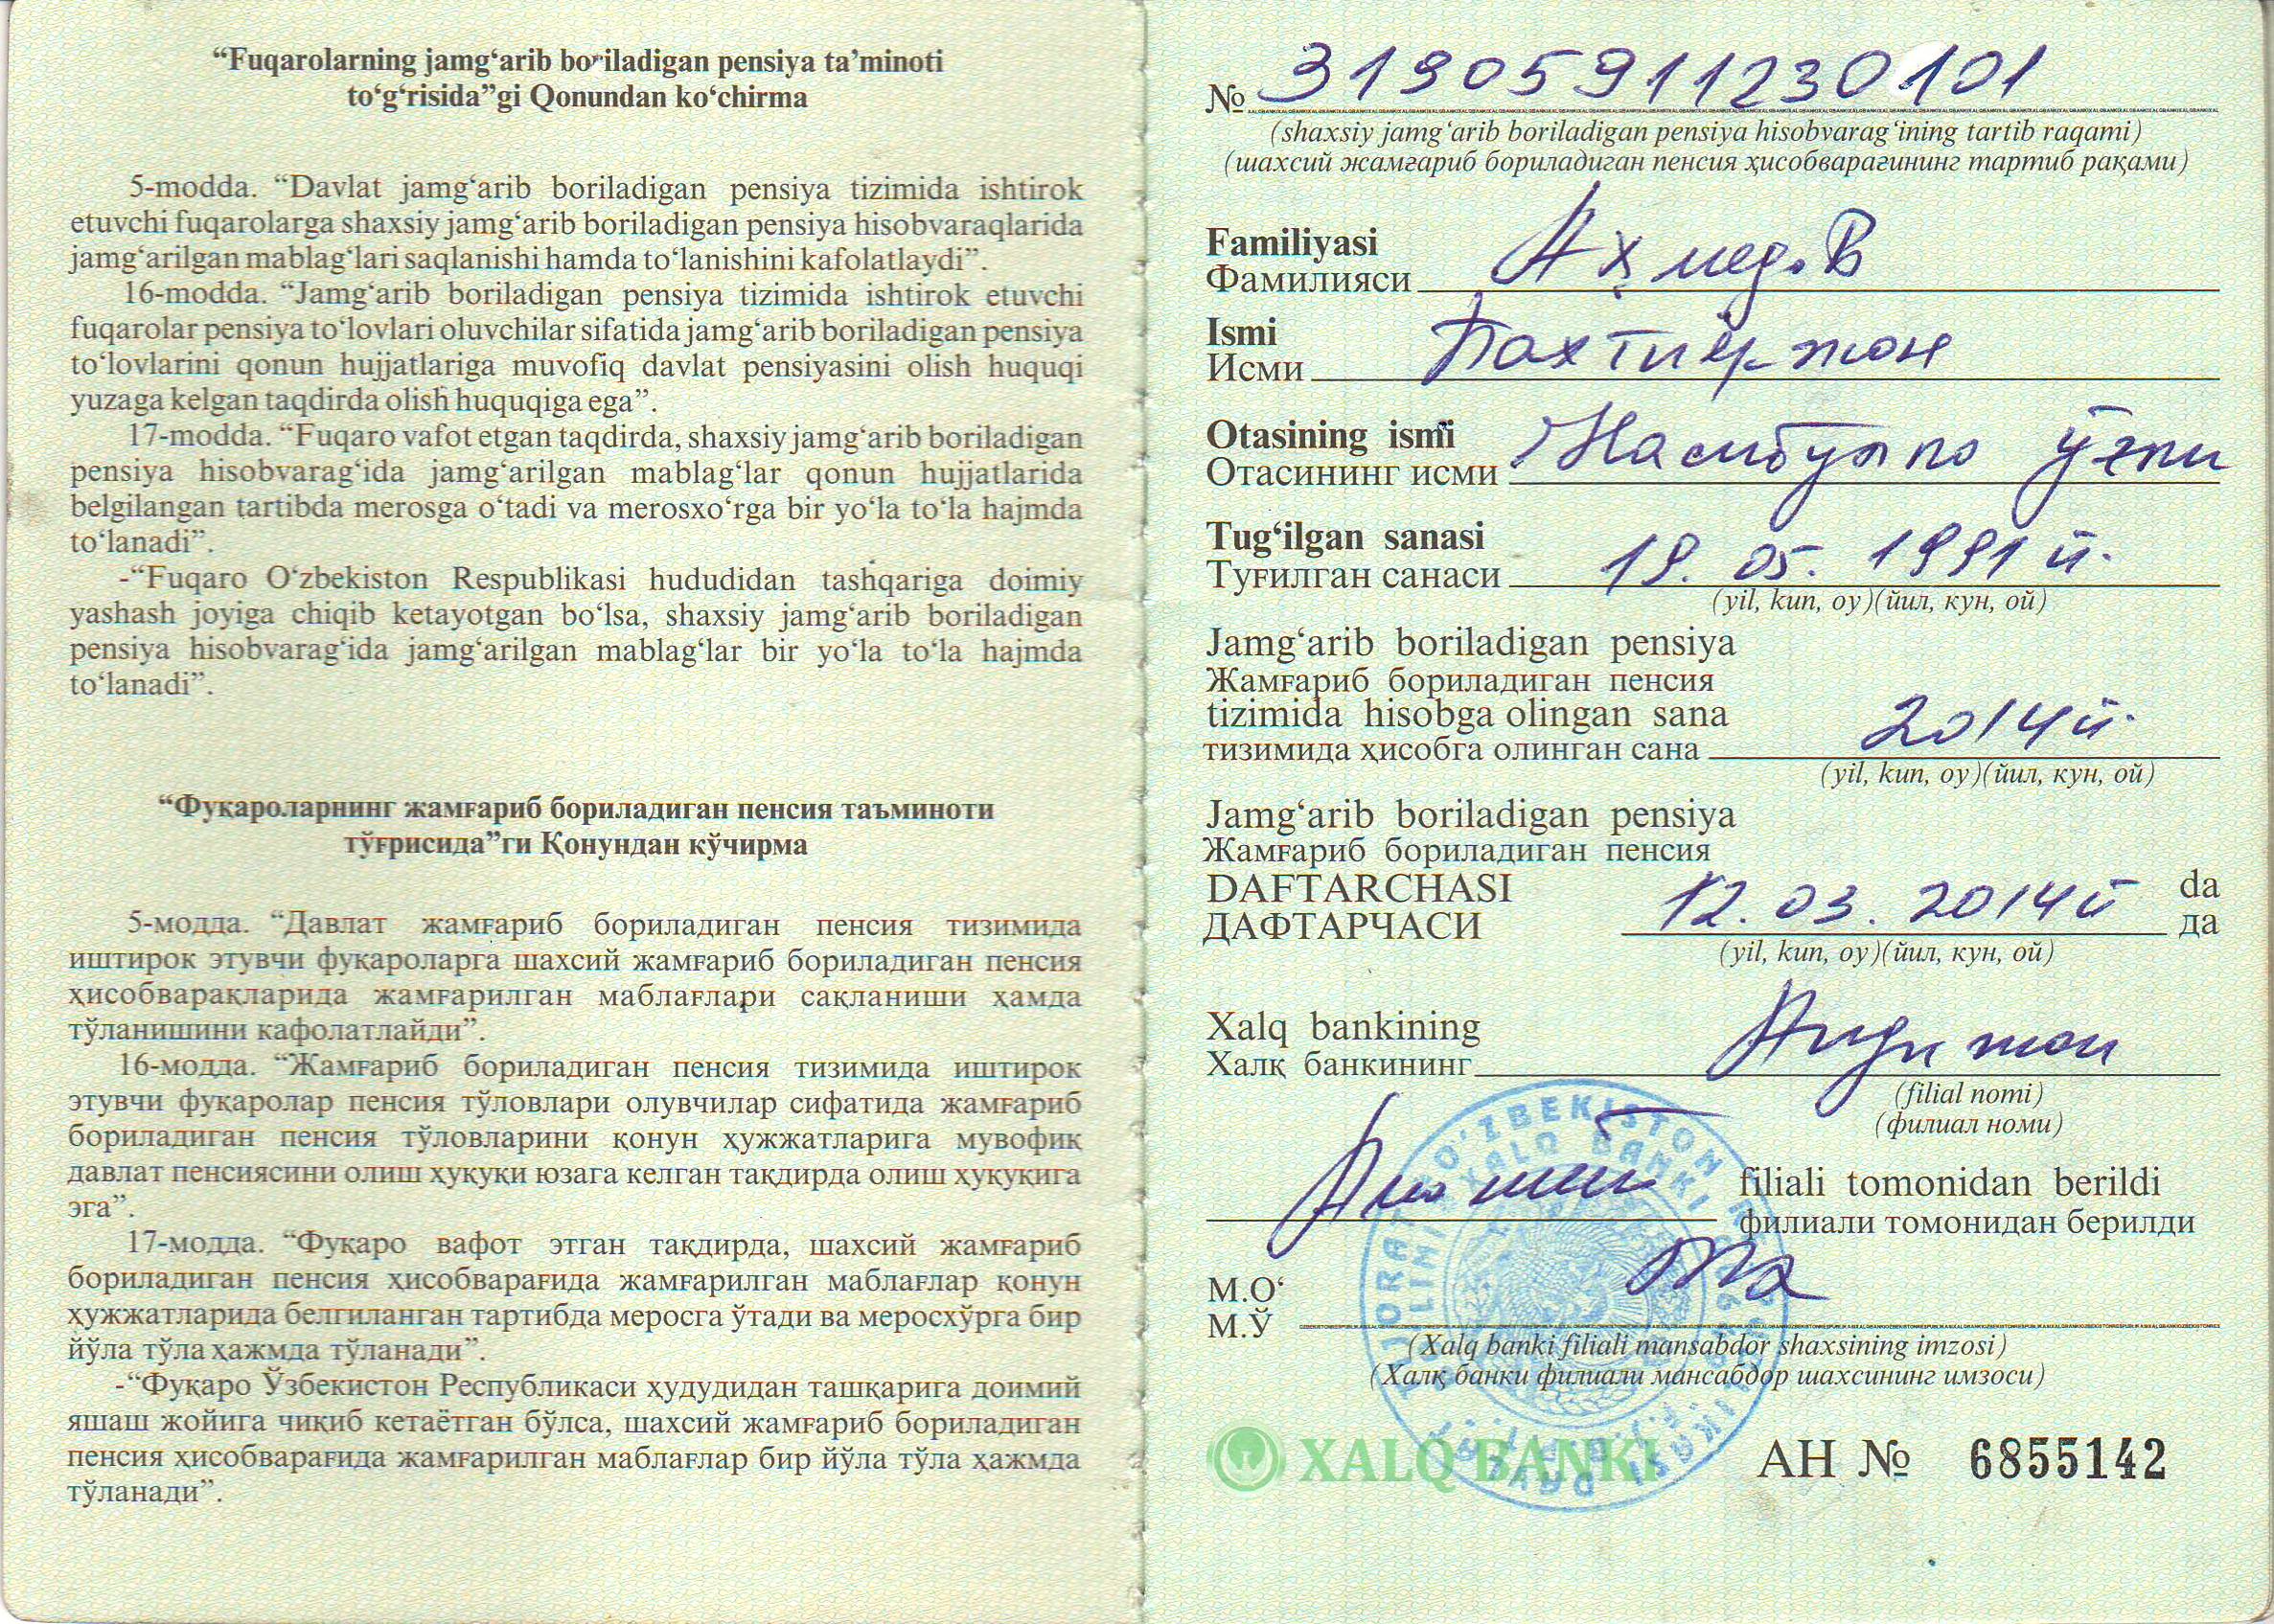 “Fuqarolarning jamg‘arib boriladigan pensiya ta’minoti
to‘g‘risida”gi Qonundan ko‘chirma
5-modda. “Davlat jamg‘arib boriladigan pensiya tizimida ishtirok
etuvchi fuqarolarga shaxsiy jamg‘arib boriladigan pensiya hisobvaraqlarida
jamg‘arilgan mablag‘lari saqlanishi hamda to‘lanishini kafolatlaydi”.
16-modda. “Jamg‘arib boriladigan pensiya tizimida ishtirok etuvchi
fuqarolar pensiya to‘lovlari oluvchilar sifatida jamg‘arib boriladigan pensiya
to‘lovlarini qonun hujjatlariga muvofiq davlat pensiyasini olish huquqi
yuzaga kelgan taqdirda olish huquqiga ega”.
17-modda. “Fuqaro vafot etgan taqdirda, shaxsiy jamg‘arib boriladigan
pensiya hisobvarag‘ida jamg‘arilgan mablag‘lar qonun hujjatlarida
belgilangan tartibda merosga o‘tadi va merosxo‘rga bir yo‘la to‘la hajmda
to‘lanadi”.
-“Fuqaro O‘zbekiston Respublikasi hududidan tashqariga doimiy
yashash joyiga chiqib ketayotgan bo‘lsa, shaxsiy jamg‘arib boriladigan
pensiya hisobvarag‘ida jamg‘arilgan mablag‘lar bir yo‘la to‘la hajmda
to‘lanadi”.
“Фуқароларнинг жамғариб бориладиган пенсия таъминоти
тўғрисида”ги Қонундан кўчирма
5-модда. “Давлат жамғариб бориладиган пенсия тизимида
иштирок этувчи фуқароларга шахсий жамғариб бориладиган пенсия
ҳисобварақларида жамғарилган маблағлари сақланиши ҳамда
тўланишини кафолатлайди”.
16-модда. “Жамғариб бориладиган пенсия тизимида иштирок
этувчи фуқаролар пенсия тўловлари олувчилар сифатида жамғариб
бориладиган пенсия тўловларини қонун ҳужжатларига мувофиқ
давлат пенсиясини олиш ҳуқуқи юзага келган тақдирда олиш ҳуқуқига
эга”.
17-модда. “Фуқаро вафот этган тақдирда, шахсий жамғариб
бориладиган пенсия ҳисобварағида жамғарилган маблағлар қонун
ҳужжатларида белгиланган тартибда меросга ўтади ва меросхўрга бир
йўла тўла ҳажмда тўланади”.
-“Фуқаро Ўзбекистон Республикаси ҳудудидан ташқарига доимий
яшаш жойига чиқиб кетаётган бўлса, шахсий жамғариб бориладиган
пенсия ҳисобварағида жамғарилган маблағлар бир йўла тўла ҳажмда
тўланади”.
№ 31905911230101
(shaxsiy jamg‘arib boriladigan pensiya hisobvarag‘ining tartib raqami)
(шахсий жамғариб бориладиган пенсия ҳисобварағининг тартиб рақами)
Familiyasi
Фамилияси Аҳмедов
Ismi
Исми Бахтиёржон
Otasining ismi
Отасининг исми ўғли
Tug‘ilgan sanasi
Туғилган санаси 19.05.1991 й.
(yil, kun, oy)(йил, кун, ой)
Jamg‘arib boriladigan pensiya
Жамғариб бориладиган пенсия
tizimida hisobga olingan sana
тизимида ҳисобга олинган сана 2014 й.
(yil, kun, oy)(йил, кун, ой)
Jamg‘arib boriladigan pensiya
Жамғариб бориладиган пенсия
DAFTARCHASI
ДАФТАРЧАСИ 12.03.2014 й
da
да
(yil, kun, oy)(йил, кун, ой)
Xalq bankining
Халқ банкининг Андижон
(filial nomi)
(филиал номи)
filiali tomonidan berildi
филиали томонидан берилди
M.O‘
М.Ў
(Xalq banki filiali mansabdor shaxsining imzosi)
(Халқ банки филиали мансабдор шахсининг имзоси)
XALQ BANKI
AH № 6855142